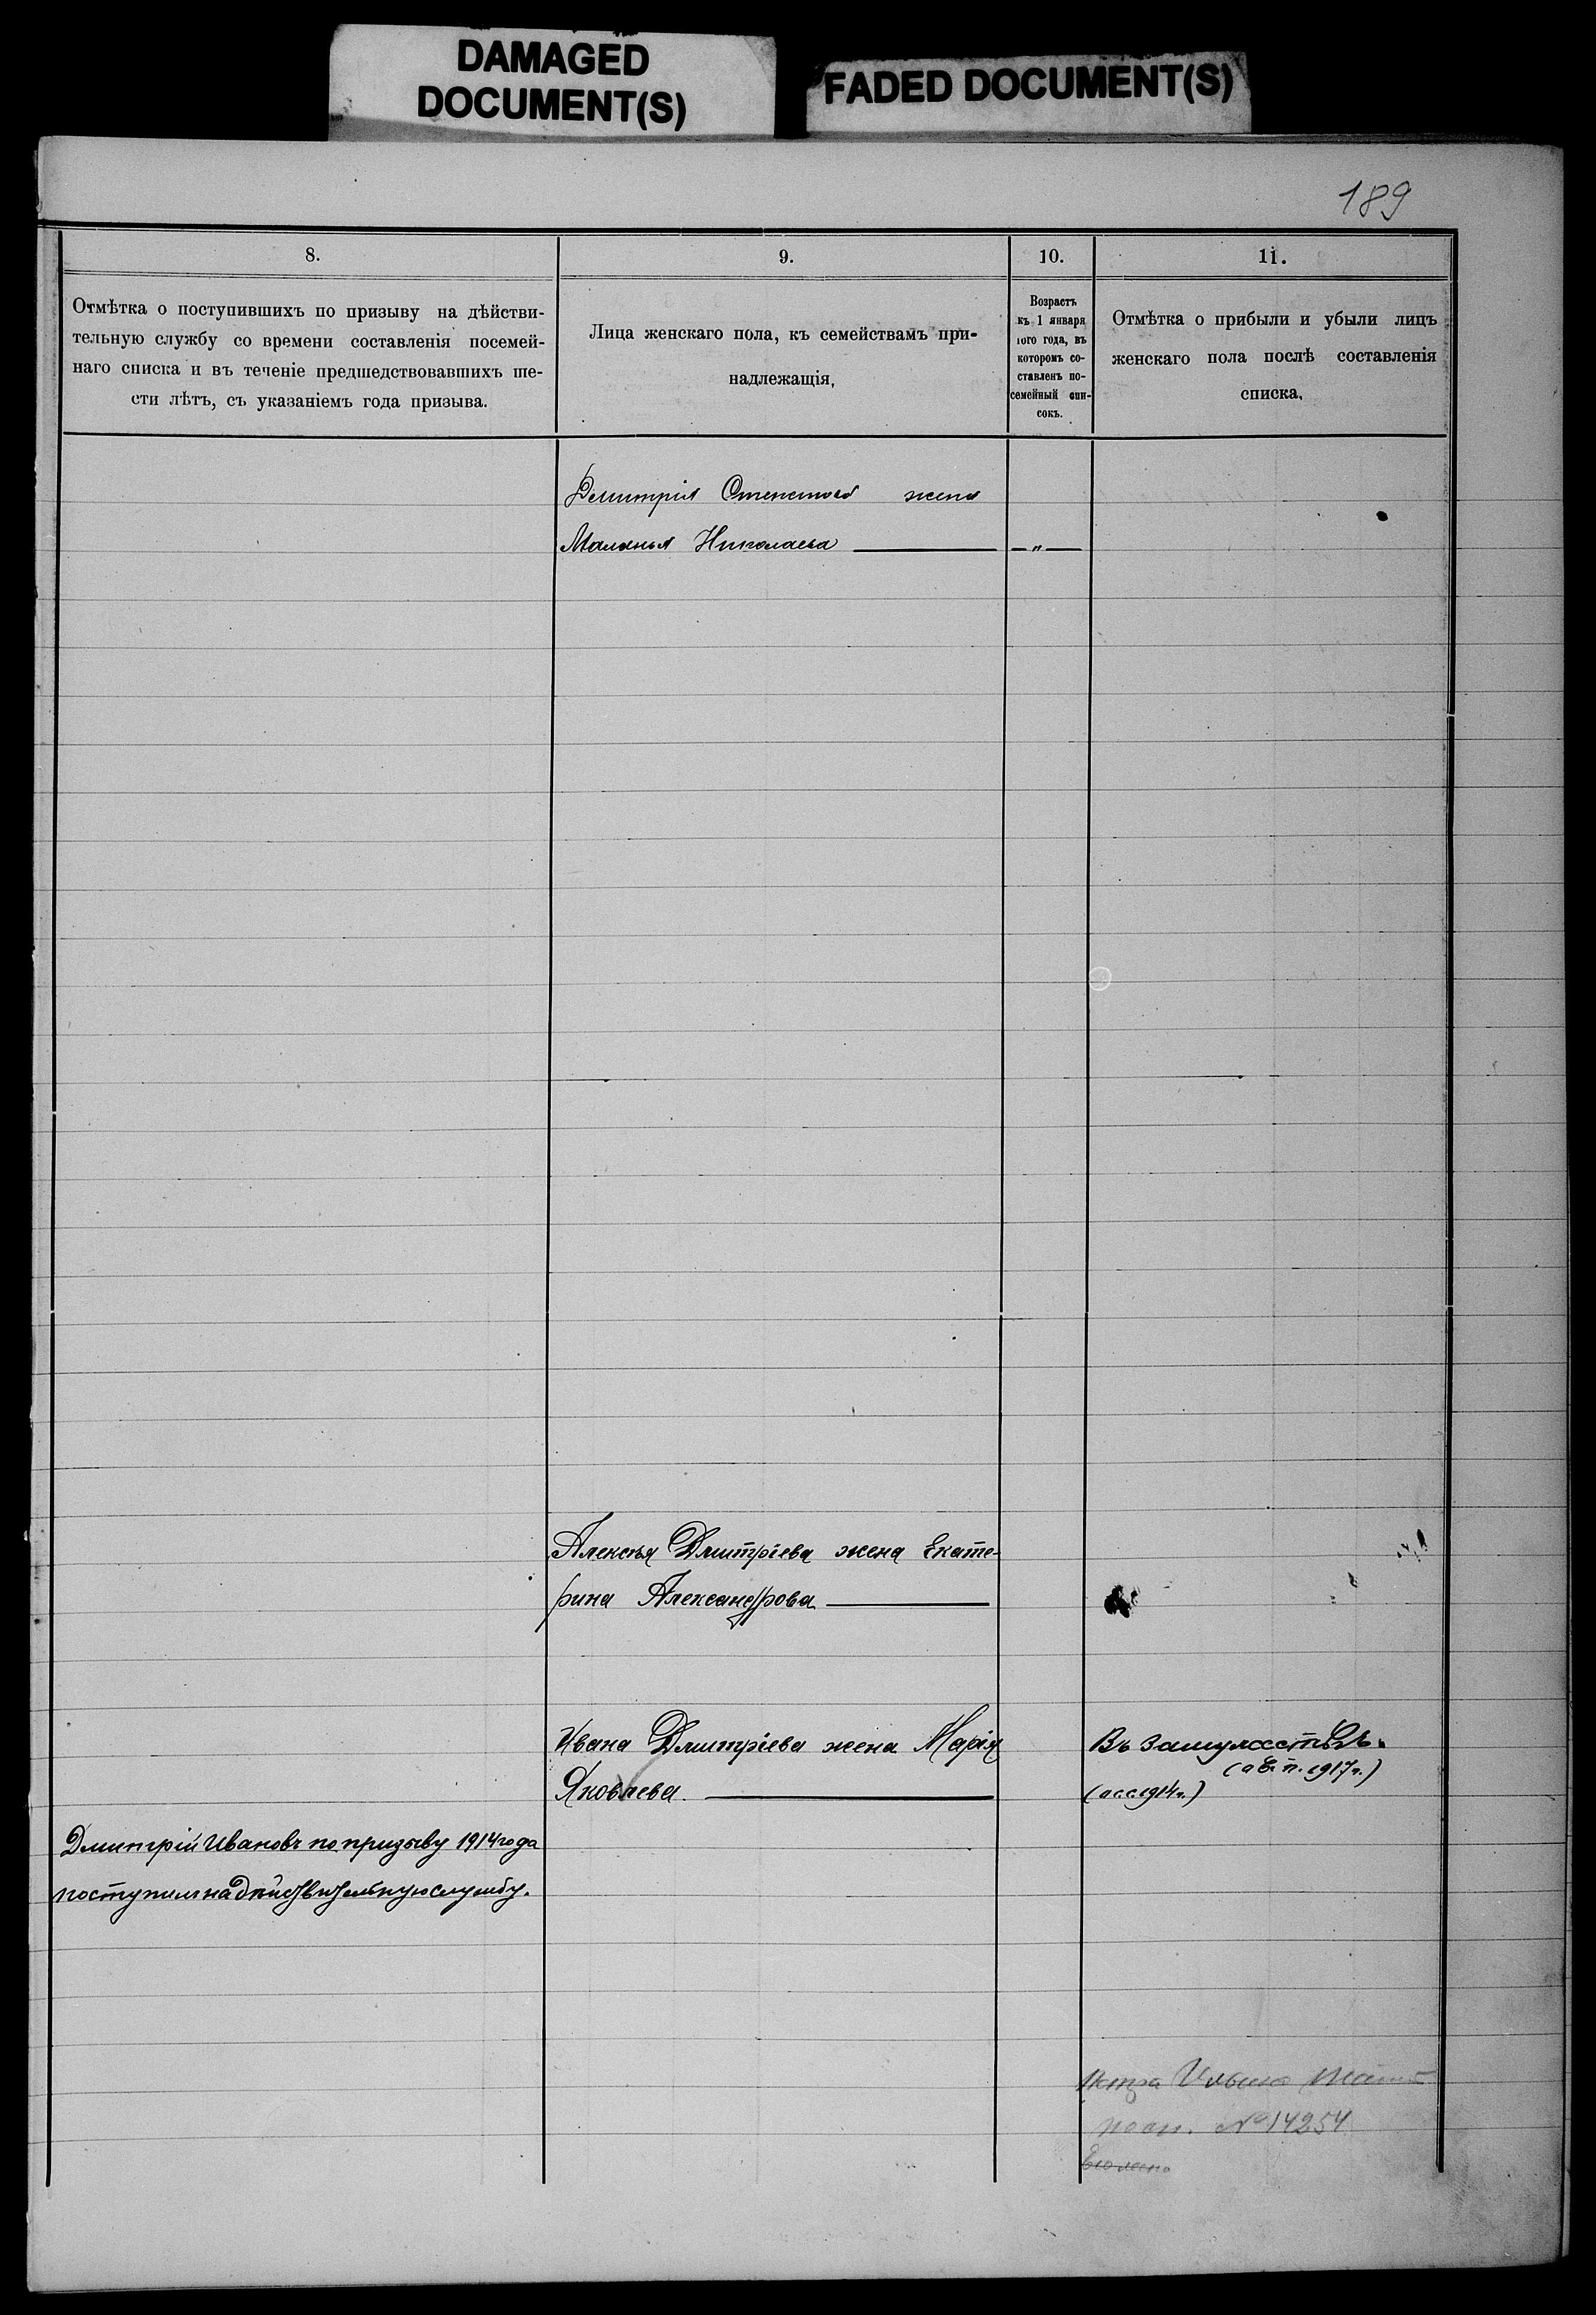 DAMAGED
DOCUMENT(S)
FADED DOCUMENT(S)
189
8.
Отмѣтка о поступившихъ по призыву на дѣйстви-
тельную службу со времени составленія посемей-
наго списка и въ теченіе предшедствовавшихъ ше-
сти лѣтъ, съ указаніемъ года призыва.
9.
Лица женскаго пола, къ семействамъ при-
надлежащія.
10.
Возрастъ
къ 1 января
того года, въ
которомъ со-
ставленъ по-
семейный спи-
сокъ.
11.
Отмѣтка о прибыли и убыли лицъ
женскаго пола послѣ составленія
списка.
Димитрія жена
Маланья Николаева — „ —
Алексѣя Дмитріева жена Екате-
рина Александрова
Ивана Дмитріева жена Марія
Яковлева.
Въ замужествѣ.
1917г.)
1914г.)
Дмитрій Ивановъ по призыву 1914 года
поступил на дѣйствительную службу.
Петра
№ 14254